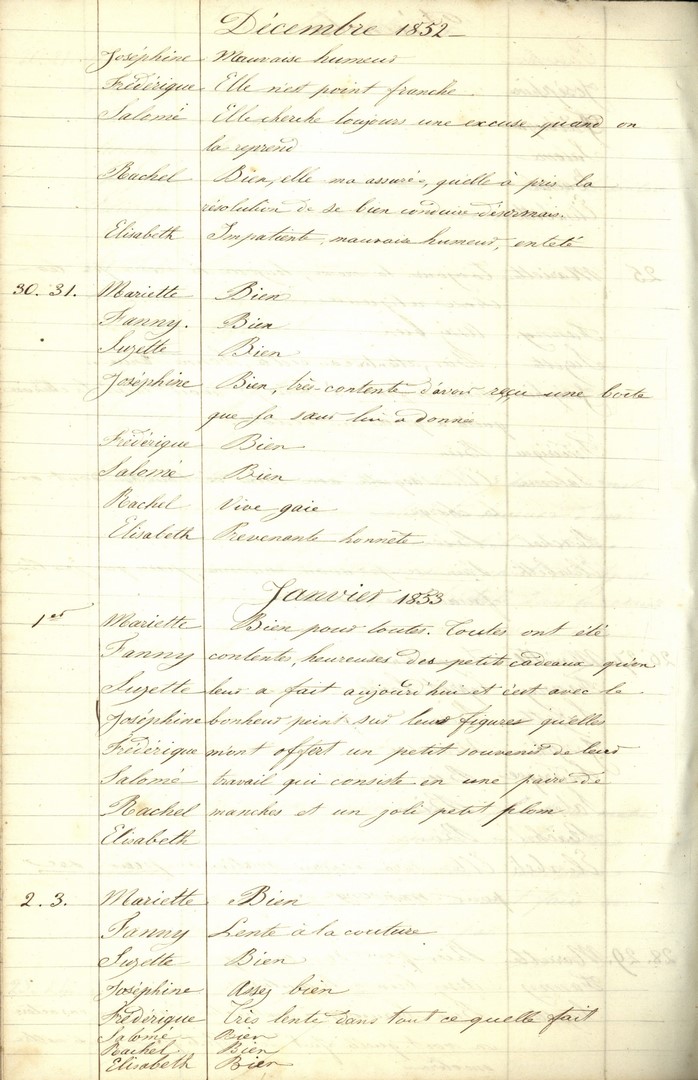 Décembre 1852
Joséphine Mauvaise humeur
Frédérique Elle n'est point franche.
Salomé Elle cherche toujours une excuse quand on
la reprend
Rachel Bien, elle ma assurée, quelle à pris la
résolution de se bien conduire désormais.
Elisabeth Impatiente, mauvaise humeur, entêté
30. 31. Mariette Bien
Fanny. Bien
Suzette Bien
Joséphine Bien, très-contente d'avoir reçu une boite
que sa sœur lui a donné
Frédérique Bien
Salomé Bien
Rachel Vive gaie
Elisabeth Prevenante honnête
Janvier 1853
1er Mariette Bien pour toutes. Toutes ont été
Fanny contentes, heureuses des petits cadeaux qu'on
Suzette leur a fait aujourd'hui et c'est avec le
Joséphine bonheur peint sur leurs figures quelles
Frédérique m'ont offert un petit souvenir de leur
Salomé travail qui consiste en une paire de
Rachel manches et un joli petit plom
Elisabeth
2. 3. Mariette Bien
Fanny Lente à la couture
Suzette Bien
Joséphine Assez bien
Frédérique Très lente dans tout ce quelle fait
Salomé Bien
Rachel Bien
Elisabeth Bien